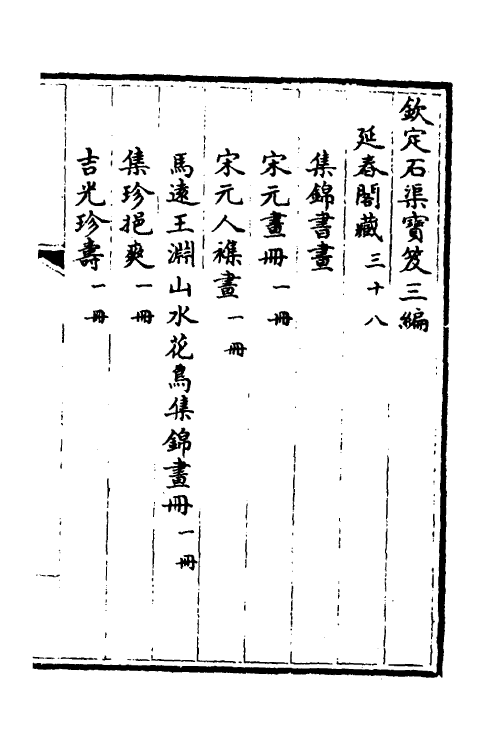 欽定石渠寶笈三編
延春閣藏三十八
集錦書畫
宋元畫冊一冊
宋元人襍畫一冊
馬遠王淵山水花鳥集錦畫冊一冊
集珍挹爽一冊
吉光珍壽一冊